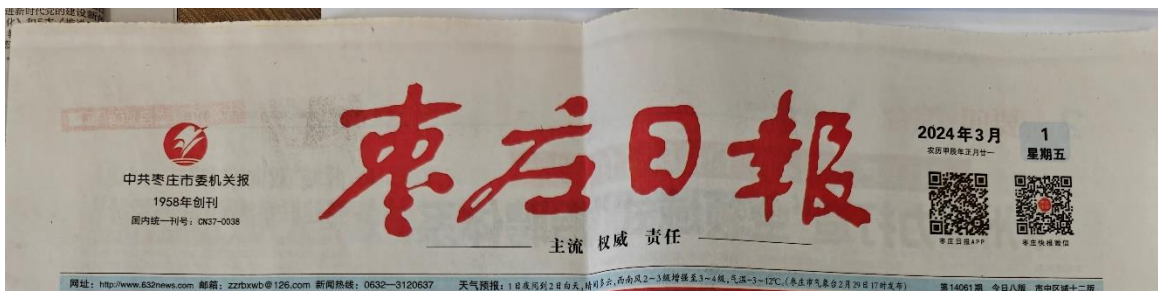 进新时代党的建设新
枣庄日報
中共枣庄市委机关报
1958年创刊
国内统一刊号：CN37-0038
主流 权威 责任
2024年3月
农历甲辰年正月廿一
1
星期五
枣庄日报APP
枣庄快报微信
网址：http://www.632news.com 邮箱：zzrbxwb@126.com 新闻热线：0632—3120637
天气预报：1日夜间到2日白天，晴间多云，西南风2～3级增强至3～4级，气温-3～12℃。（枣庄市气象台2月29日17时发布）
第14061期 今日八版 市中区城十二版